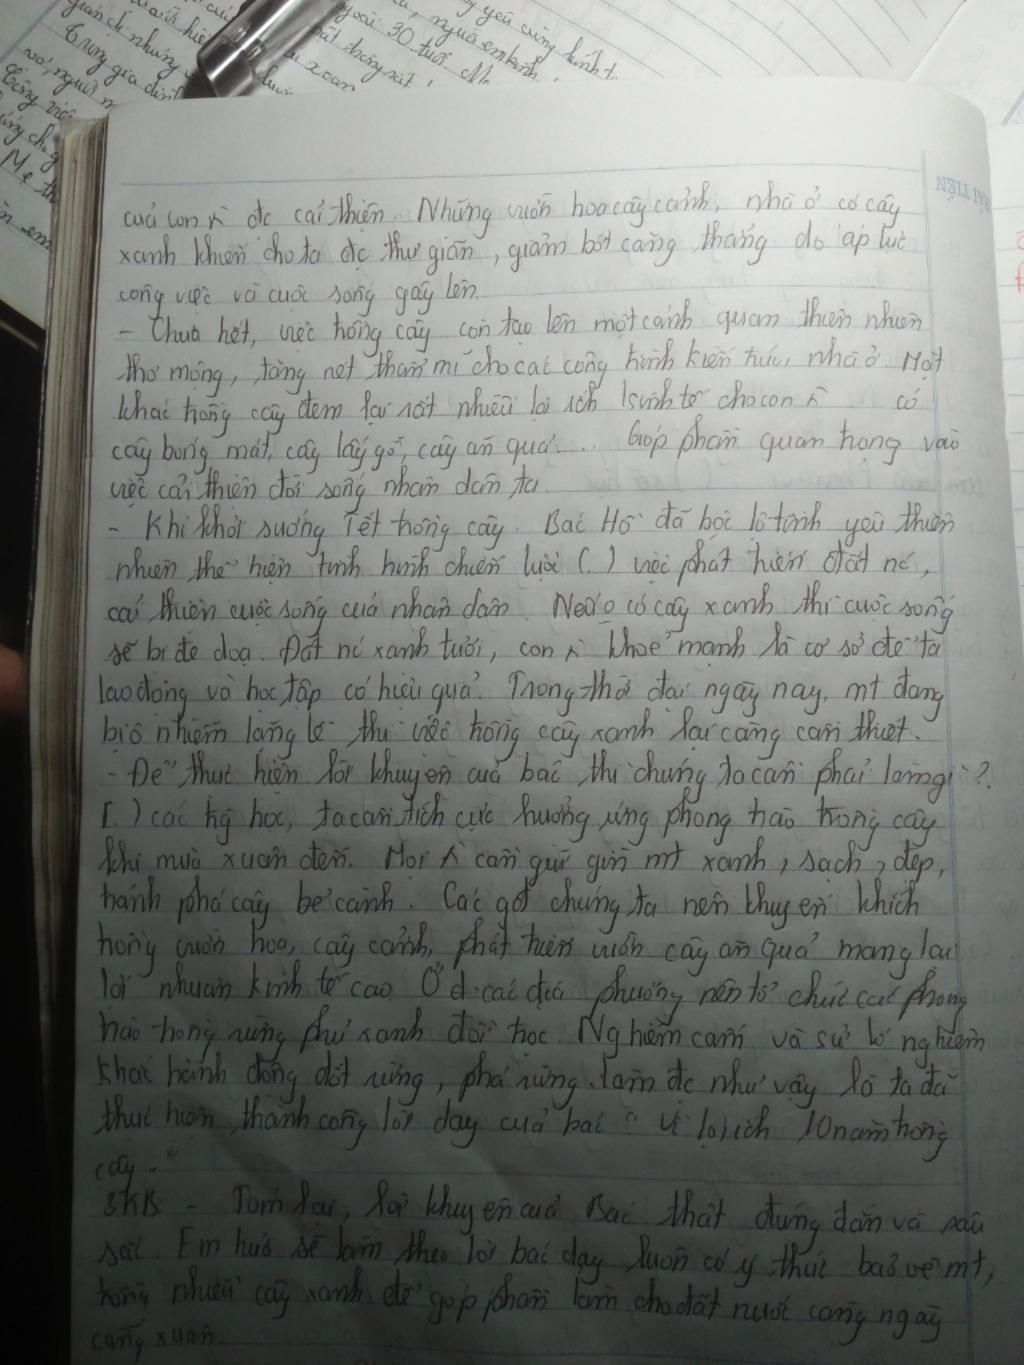 yêu cũng kính t
ngoài 30 tuổi
Trong gia đình
Mẹ th
của con ʌ đc cải thiện. Những vườn hoa cây cảnh, nhà ở có cây
xanh khiến cho ta đc thư giãn, giảm bớt căng thẳng do áp lực
công việc và cuộc sống gây lên.
- Chưa hết, việc trồng cây còn tạo lên một cảnh quan thiên nhiên
thơ mộng, tăng nét thẩm mĩ cho các công trình kiến trúc, nhà ở. Mặt
khác trồng cây đem lại rất nhiều lợi ích kinh tế cho con ʌ có
cây bóng mát, cây lấy gỗ, cây ăn quả.... Góp phần quan trọng vào
việc cải thiện đời sống nhân dân ta.
- Khi khởi sướng Tết trồng cây. Bác Hồ đã bộc lộ tình yêu thiên
nhiên thể hiện tính hình chiến lược (.) việc phát triển đất nc,
cải thiện cuộc sống của nhân dân. Nếu o có cây xanh thì cuộc sống
sẽ bị đe doạ. Đất nc xanh tươi, con ʌ khoẻ mạnh là cơ sở để ta
lao động và học tập có hiệu quả. Trong thời đại ngày nay, mt đang
bị ô nhiễm lặng lẽ thì việc trồng cây xanh lại càng cần thiết.
- Để thực hiện lời khuyên của bác thì chúng ta cần phải làm gì?
(.) các trg học, ta cần tích cực hưởng ứng phong trào trồng cây
khi mùa xuân đến. Mọi ʌ cần giữ gìn mt xanh, sạch, đẹp,
tránh phá cây bẻ cành. Các gđ chúng ta nên khuyến khích
trồng vườn hoa, cây cảnh, phát triển vườn cây ăn quả mang lại
lợi nhuận kinh tế cao. Ở các địa phương nên tổ chức các phong
trào trồng rừng phủ xanh đồi trọc. Nghiêm cấm và sử lí nghiêm
khắc hành động đốt rừng, phá rừng. làm đc như vậy là ta đã
thực hiện thành công lời dạy của bác " vì lợi ích 10 năm trồng
cây."
3. KB: - Tóm lại, lời khuyên của Bác thật đúng đắn và sâu
sắc. Em hứa sẽ làm theo lời bác dạy luôn có ý thức bảo vệ mt,
trồng nhiều cây xanh để góp phần làm cho đất nước càng ngày
càng xuân.